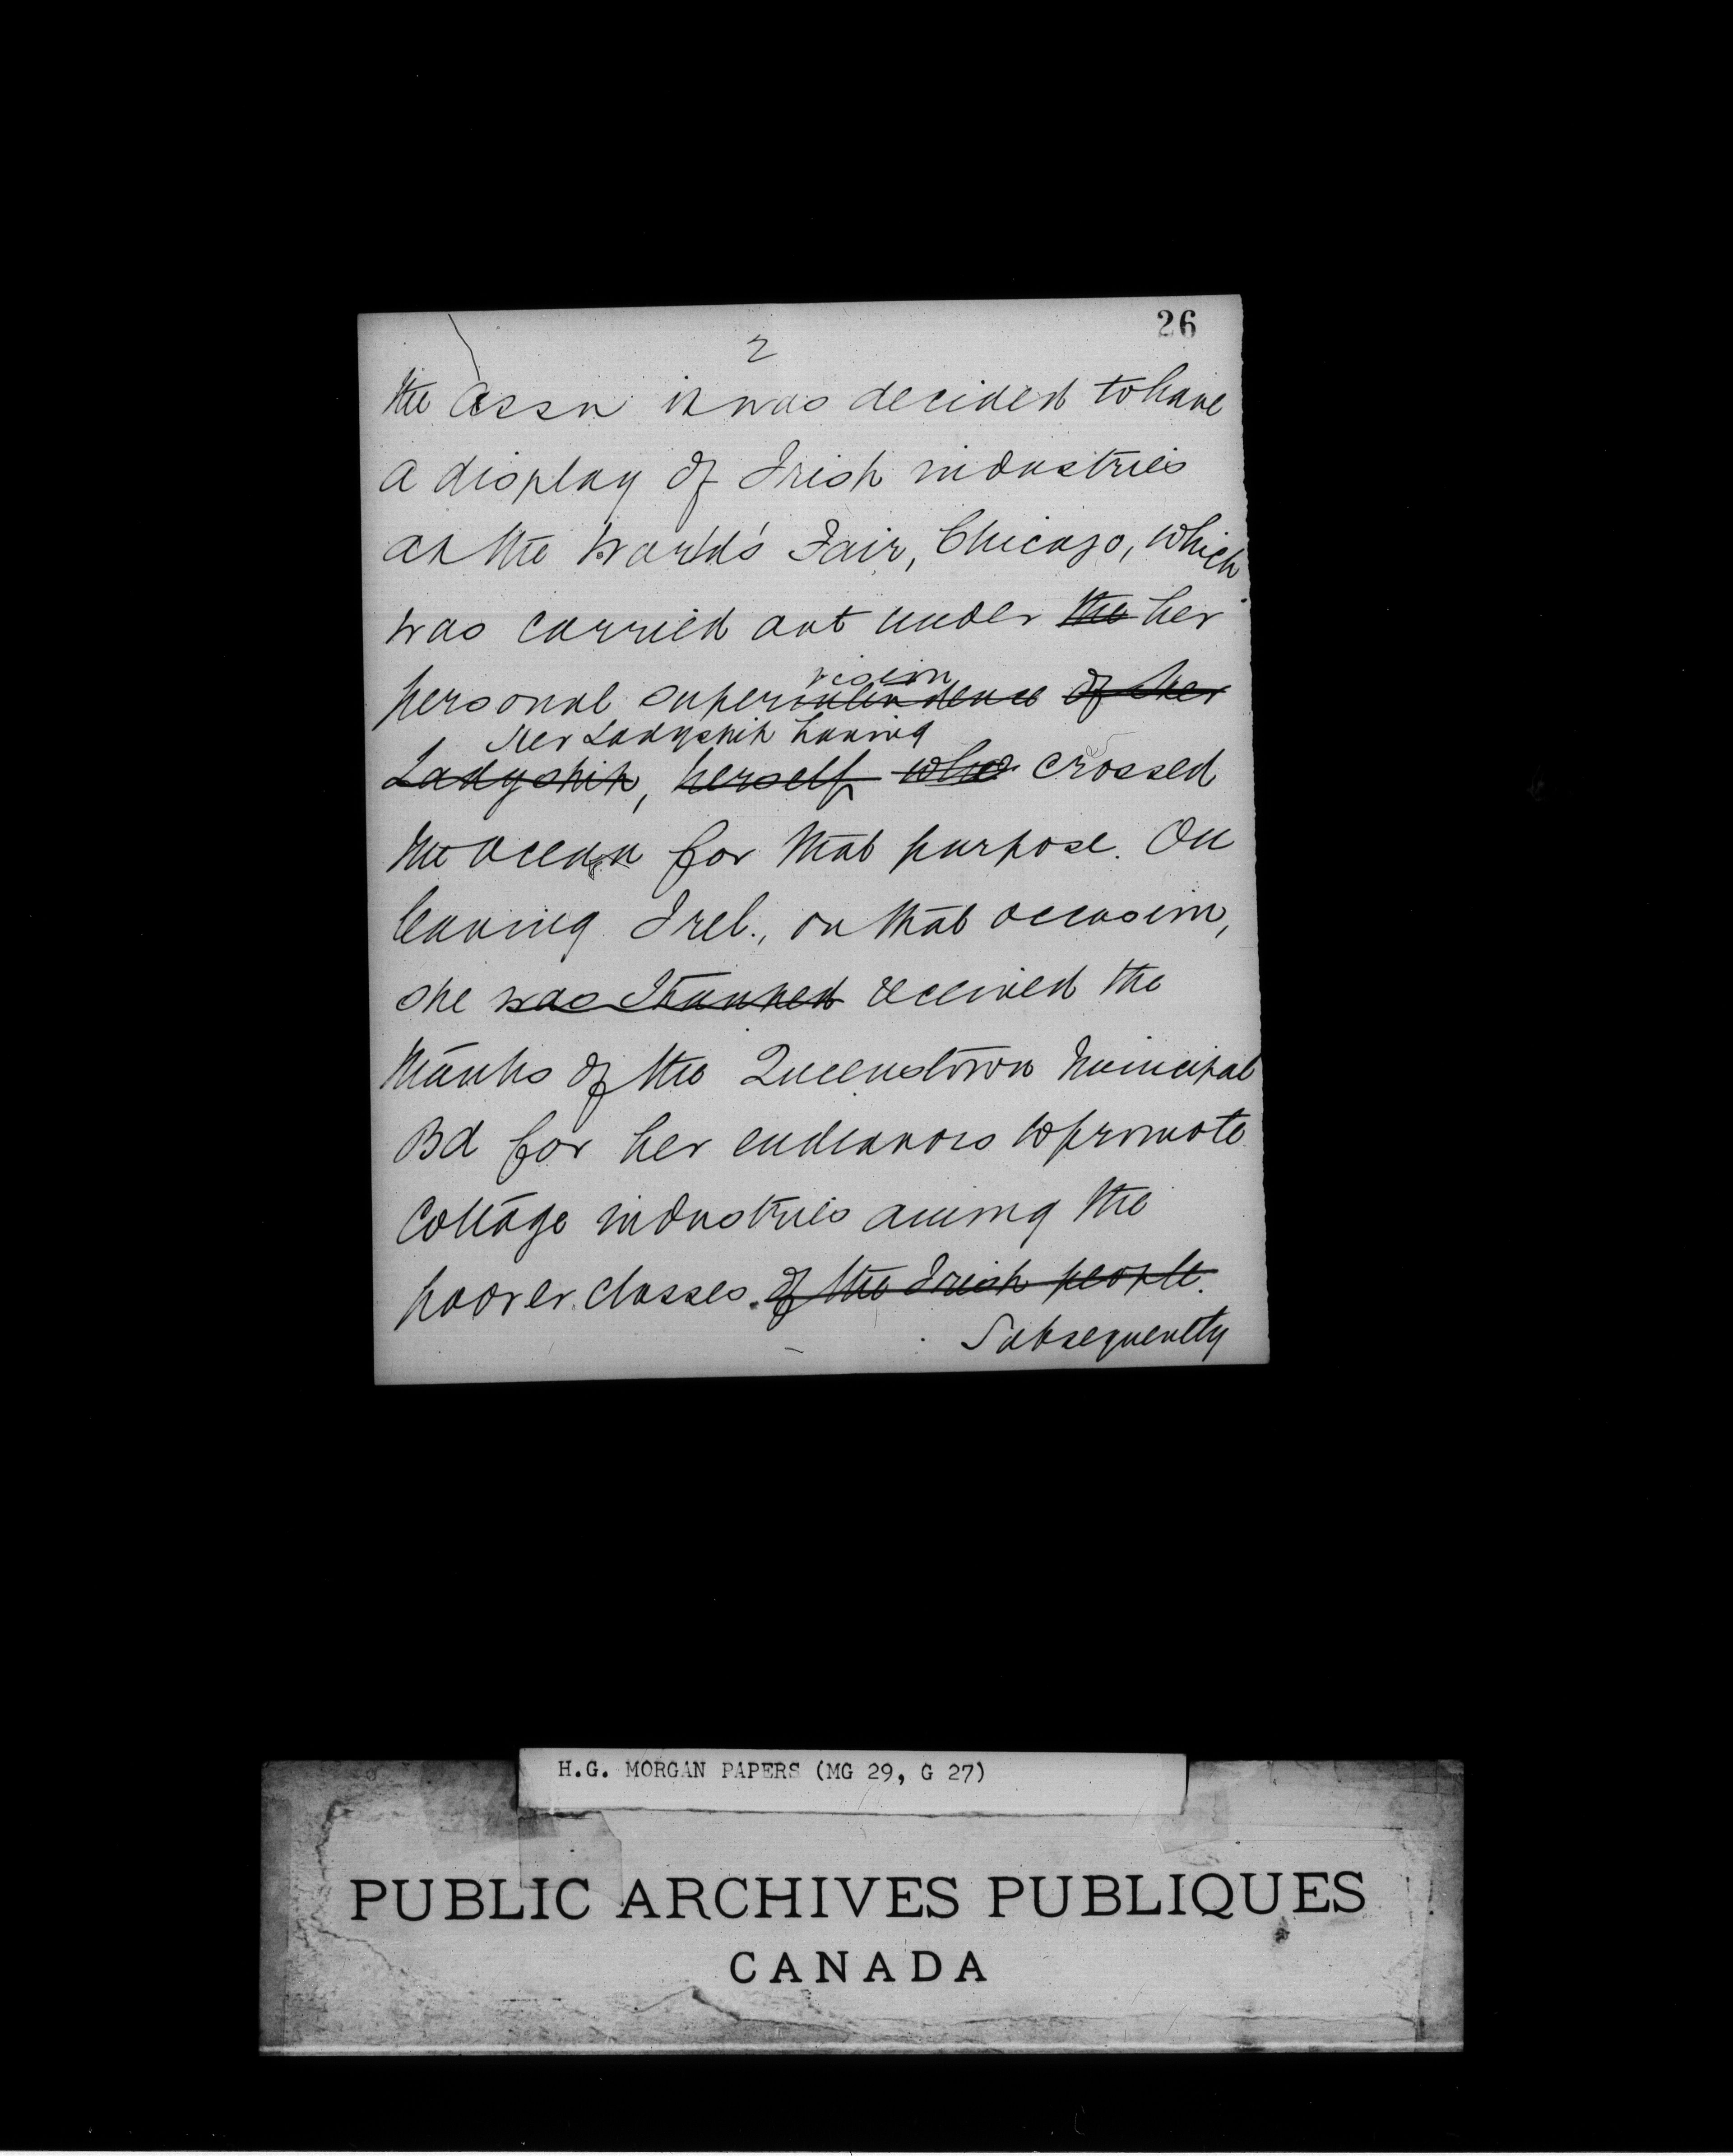 26
2
the Assn it was decided to have
a display of Irish industries
at the World's Fair, Chicago, which
was carried out under the her
vision
personal superintendence of her
Her Ladyship having
Ladyship, herself who crossed
the ocean for that purpose. On
leaving Irel., on that occasion,
she was thanked received the
thanks of the Queenstown Municipal
Bd for her endeavors to promote
Cottage industries among the
poorer classes. of the Irish people.
Subsequently
H.G. MORGAN PAPERS (MG 29, G 27)
PUBLIC ARCHIVES PUBLIQUES
CANADA